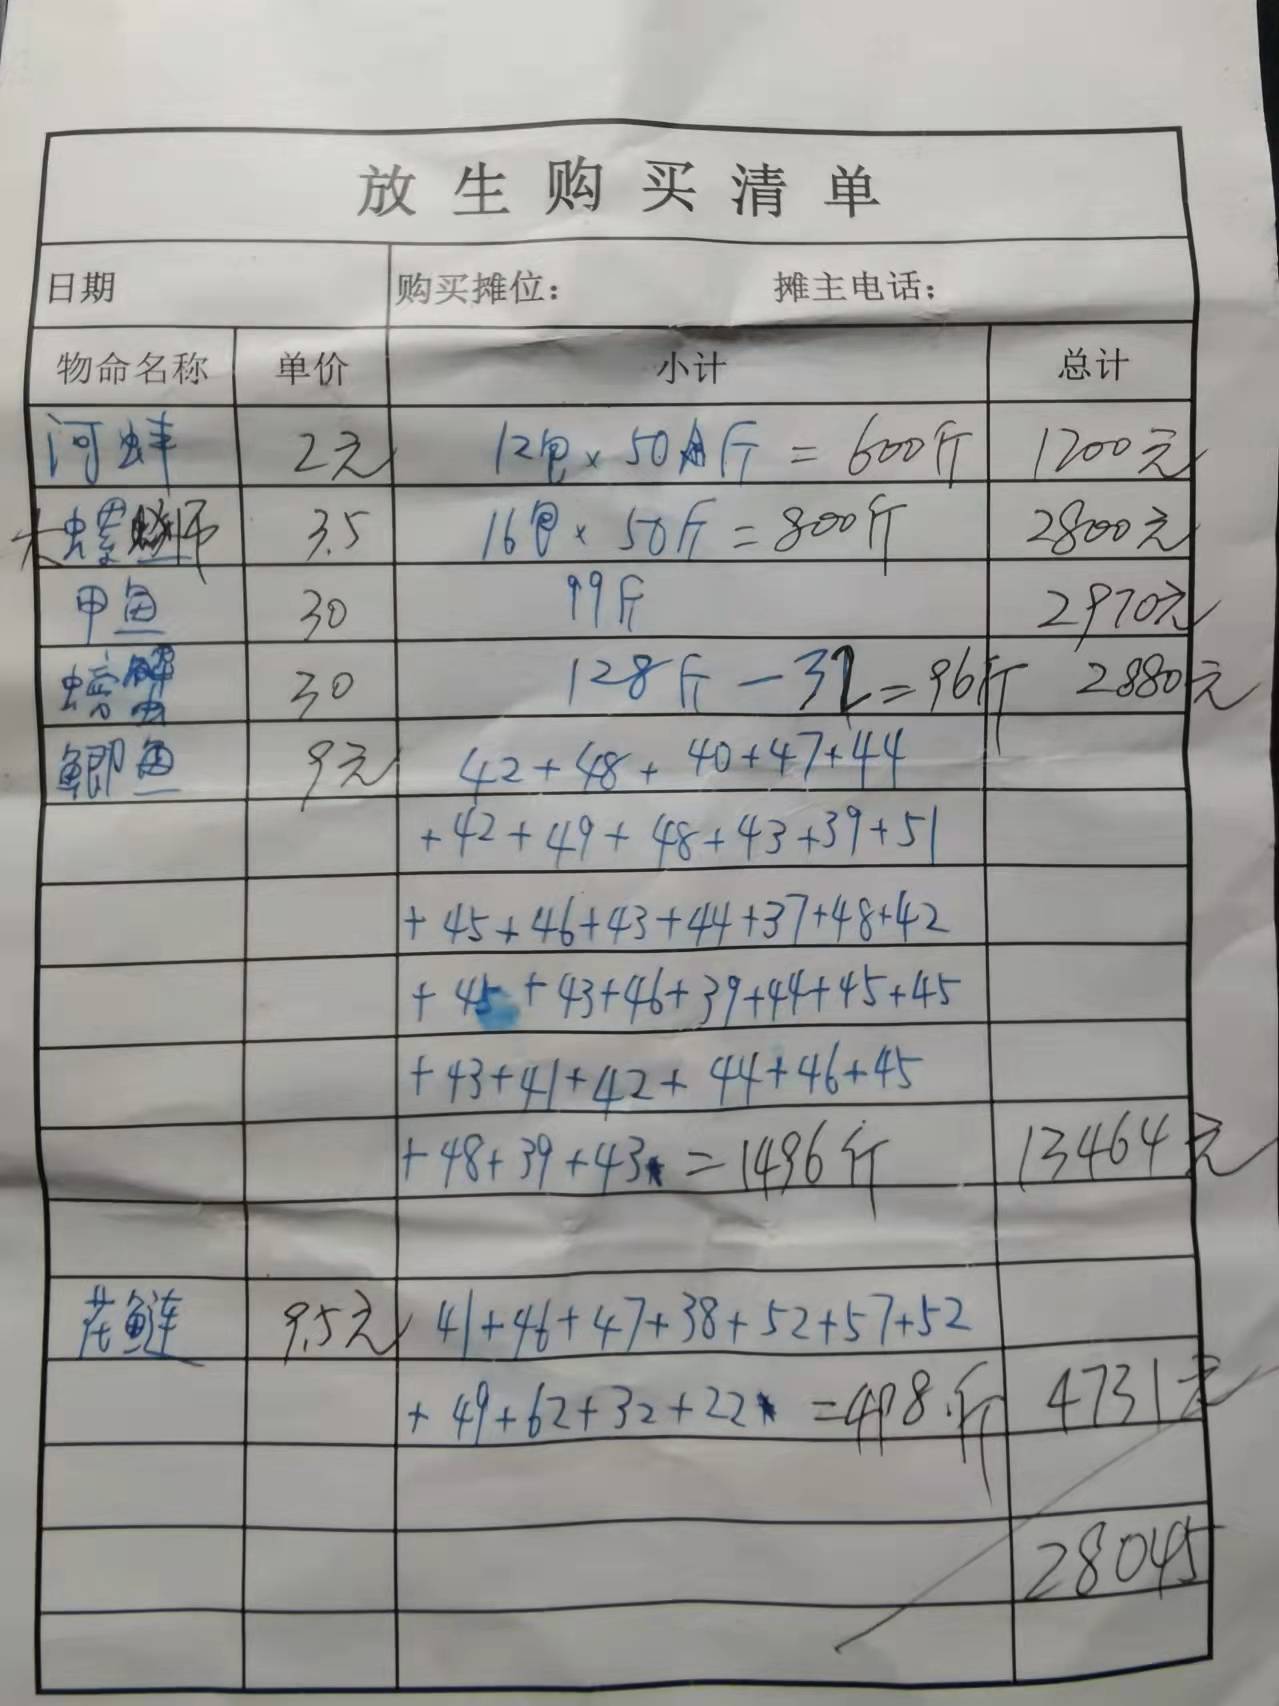 放生购买清单
日期 购买摊位： 摊主电话：
物命名称 单价 小计 总计
河蚌 2元 12包×50斤=600斤 1200元
大螺蛳 3.5 16包×50斤=800斤 2800元
甲鱼 30 99斤 2970元
螃蟹 30 128斤-32=96斤 2880元
鲫鱼 9元 42+48+40+47+44
+42+49+48+43+39+51
+45+46+43+44+37+48+42
+45+43+46+39+44+45+45
+43+41+42+44+46+45
+48+39+43=1496斤 13464元
花鲢 9.5元 41+46+47+38+52+57+52
+49+62+32+22=498斤 4731元
28045